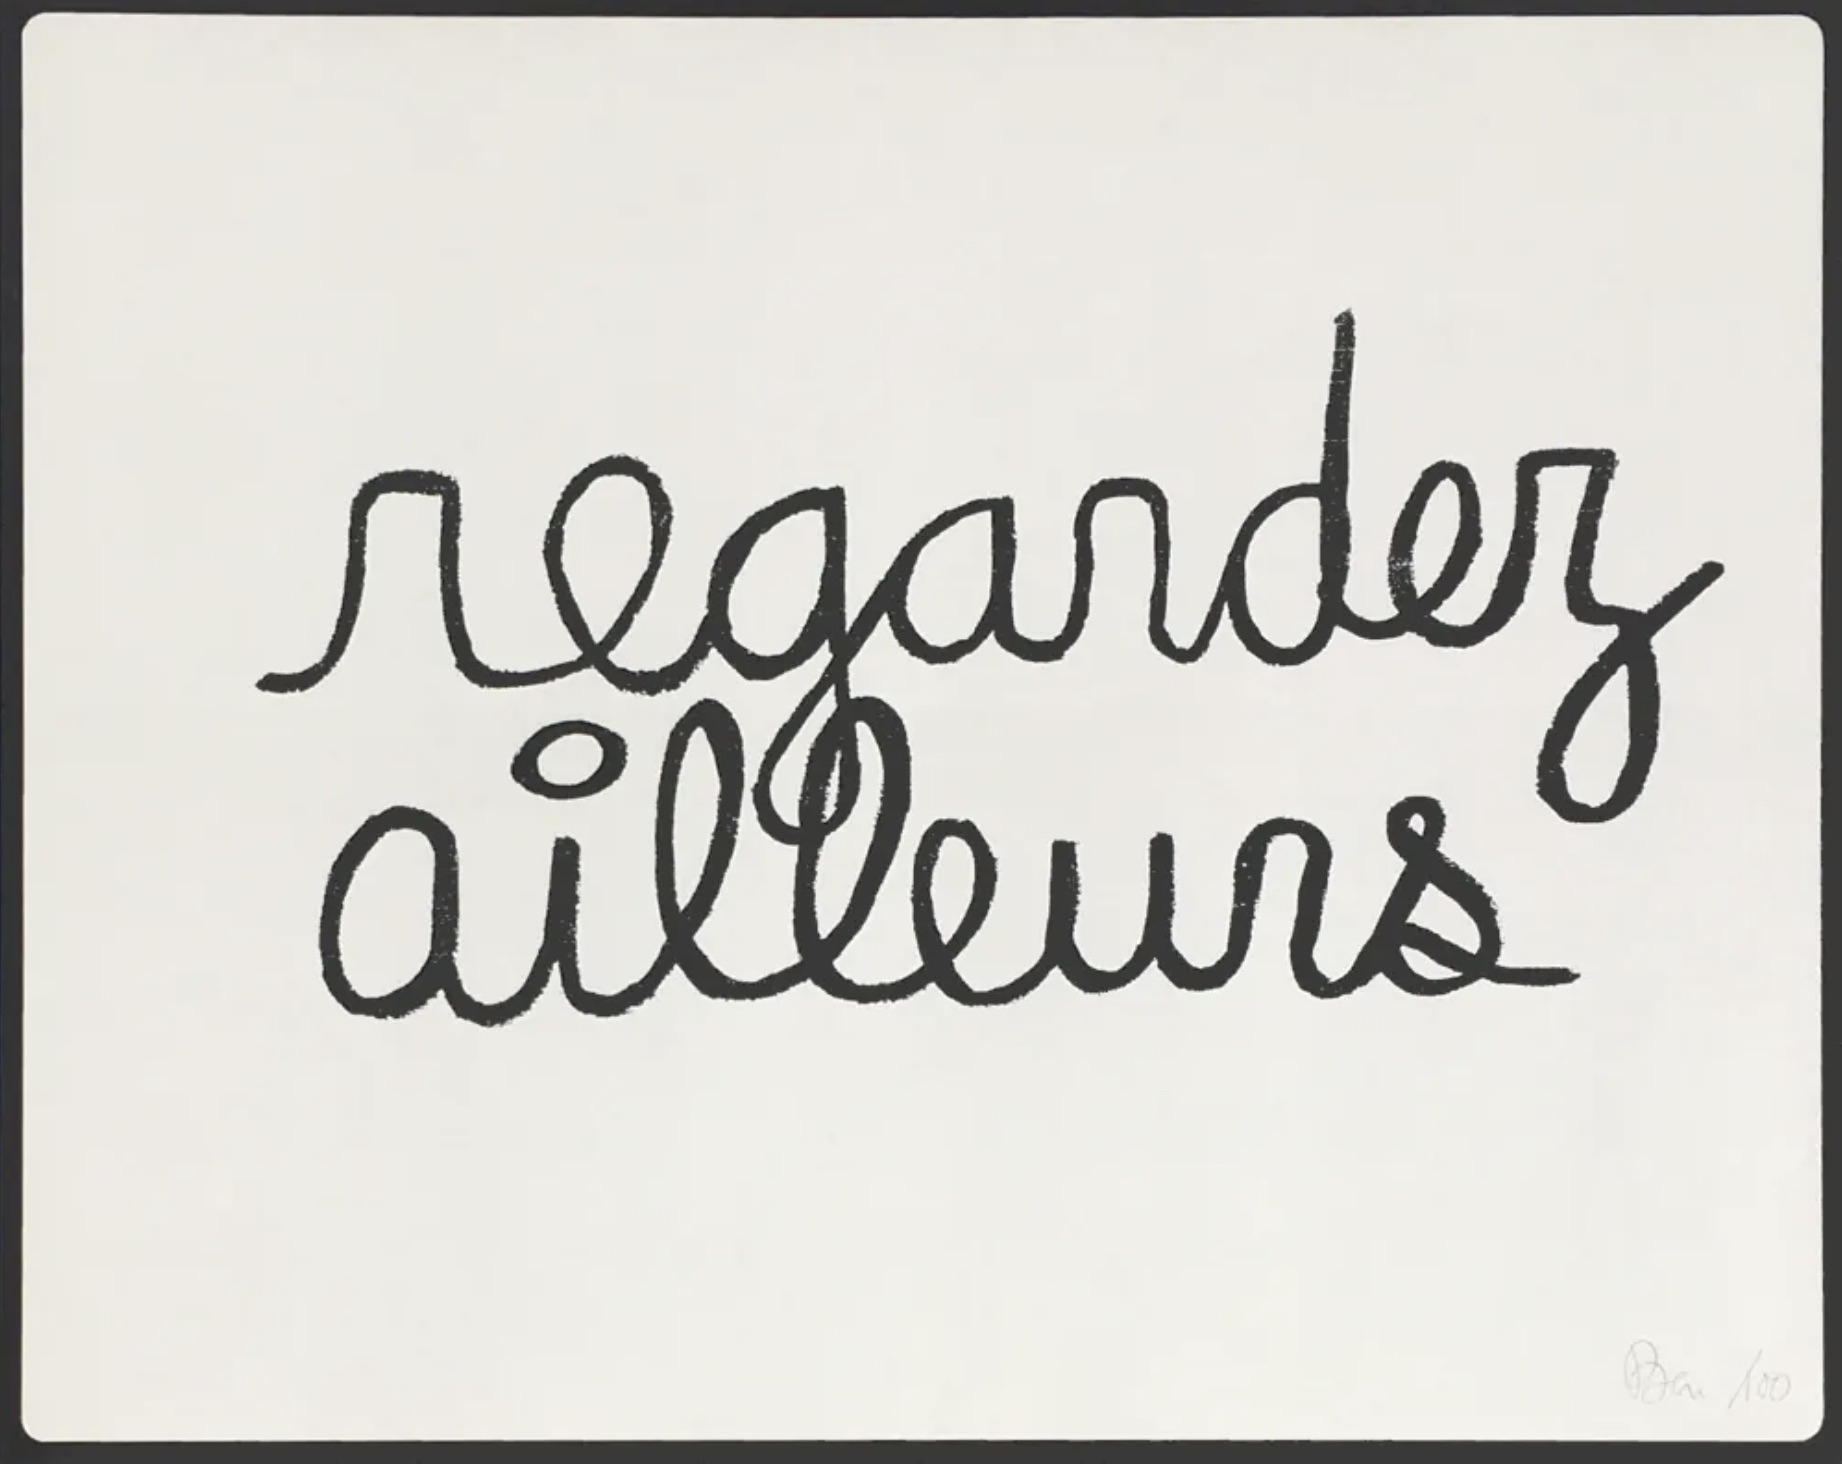 regardez
ailleurs
Ben /100